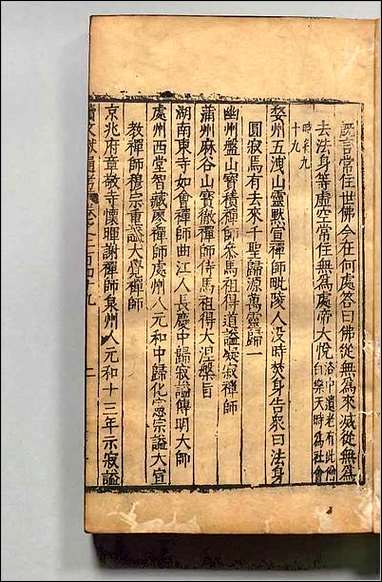 既言常住世佛今在何處答曰佛從無為來滅從無為
去法身等虛空常住無為處帝大悅洛中遺老有此僧
白樂天時為社會
時年九
十九
婺州五洩山靈默宣禪師毗陵人没時焚身告衆曰法身
圓寂焉有去來千聖歸源萬靈歸一
幽州盤山寶積禪師參馬祖得道謚凝寂禪師
蒲州麻谷山寶徹禪師侍馬祖得大涅槃旨
湖南東寺如會禪師曲江人長慶中歸寂謚傳明大師
處州西堂智藏禪師處州人元和中歸化憲宗謚大宣
教禪師穆宗重謚大覺禪師
京兆府章敬寺懷暉禪師泉州人元和十三年示寂謚
文獻通考 卷之二百四十九